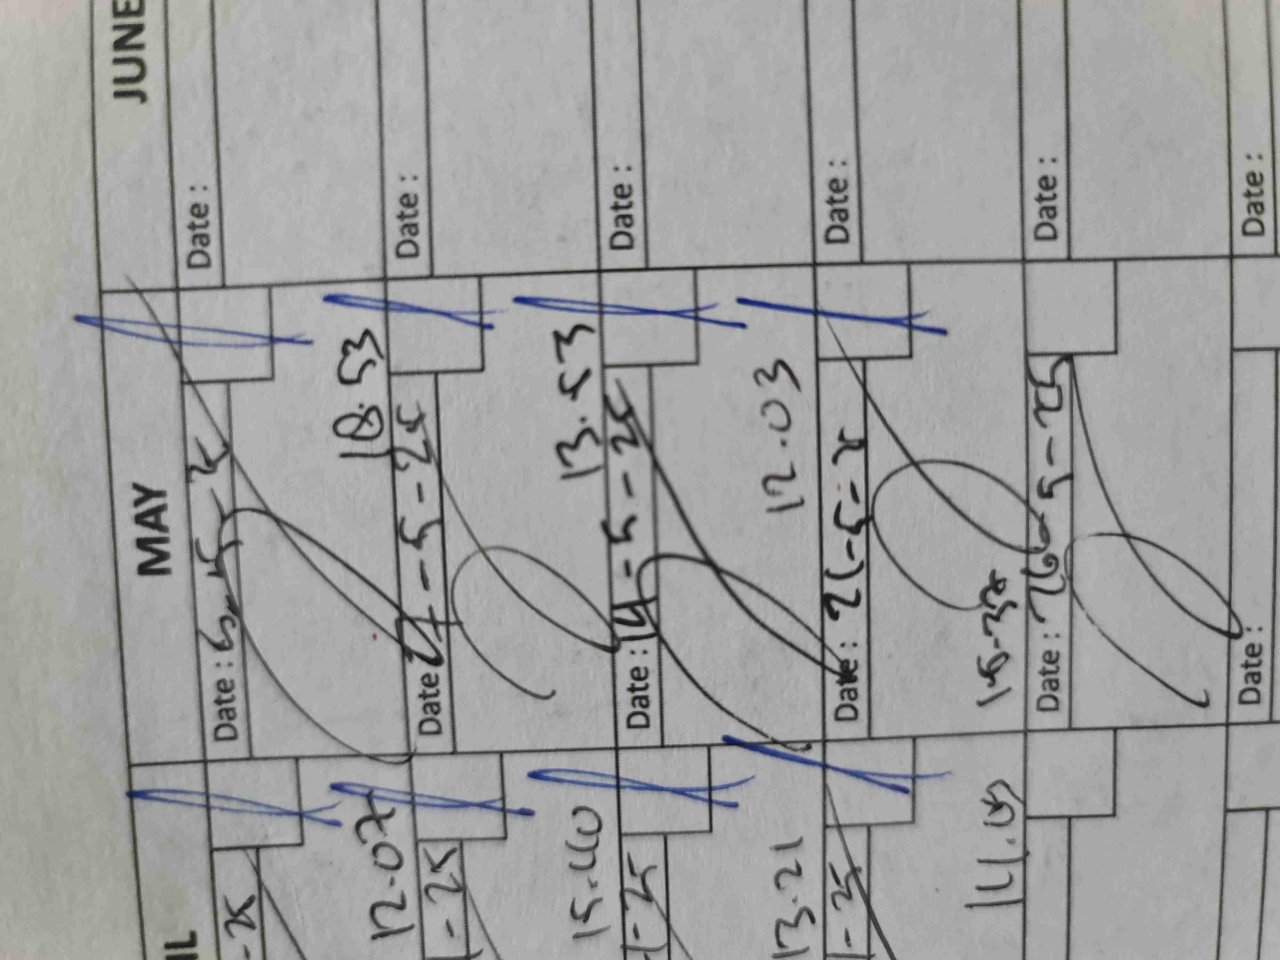 MAY JUNE
-25 Date : Date :
12.07 18.53
-25 Date : 7-5-25 Date :
15.40 13.53
-25 Date : 14-5-25 Date :
13.21 12.03
-25 Date : 21-5-25 Date :
Date : 26-5-25 Date :
Date : Date :